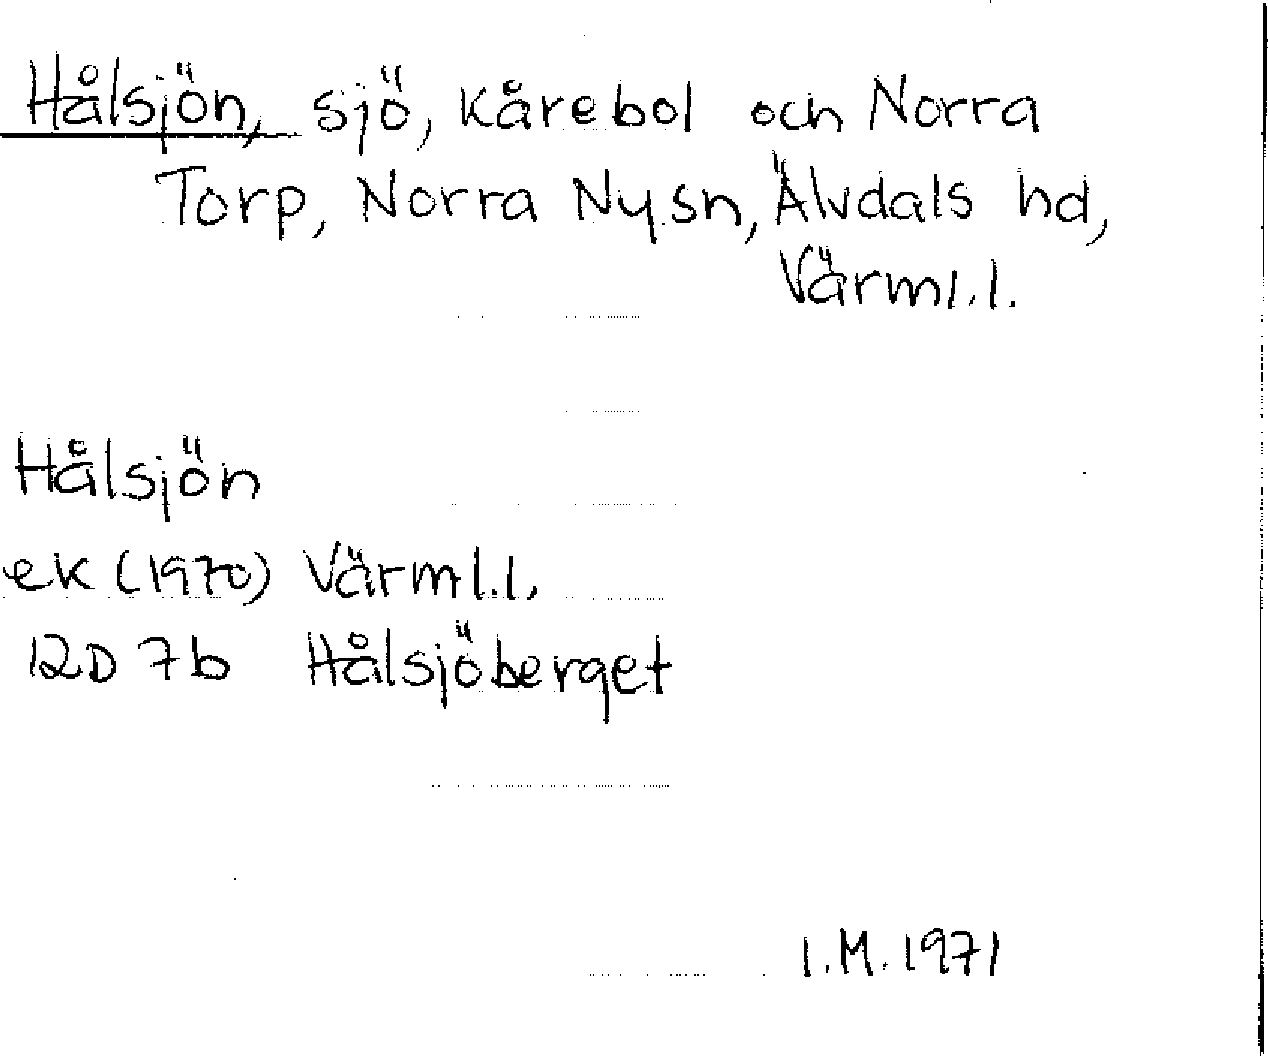 Hålsjön, sjö, Kårebol och Norra
Torp, Norra Ny sn, Älvdals hd,
Värml.l.
Hålsjön
ek (1970) Värml.l.
12D 7b Hålsjöberget
I.M. 1971